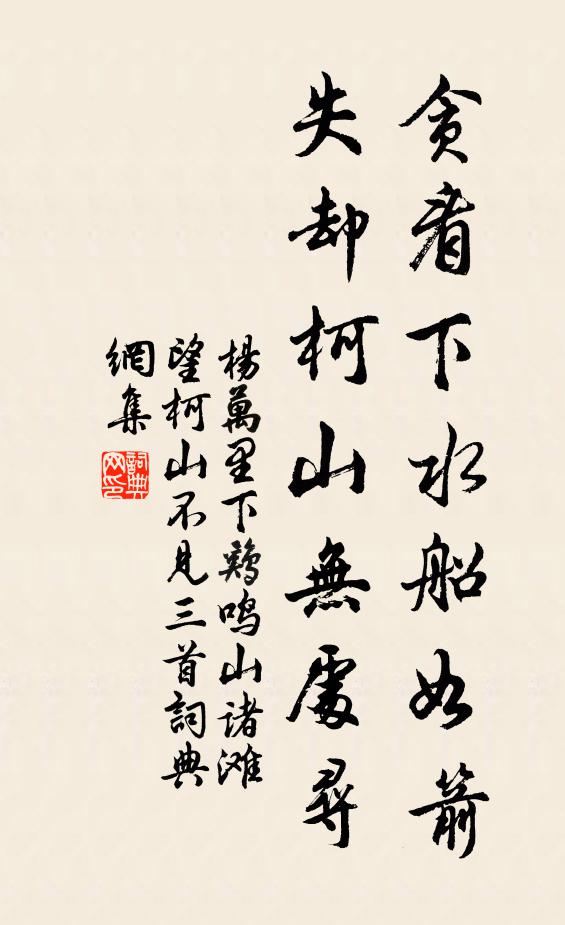 貪看下水船如箭
失却柯山無處尋
楊萬里下鷄鳴山诸滩
望柯山不見三首詞典
網集
詞典
网印